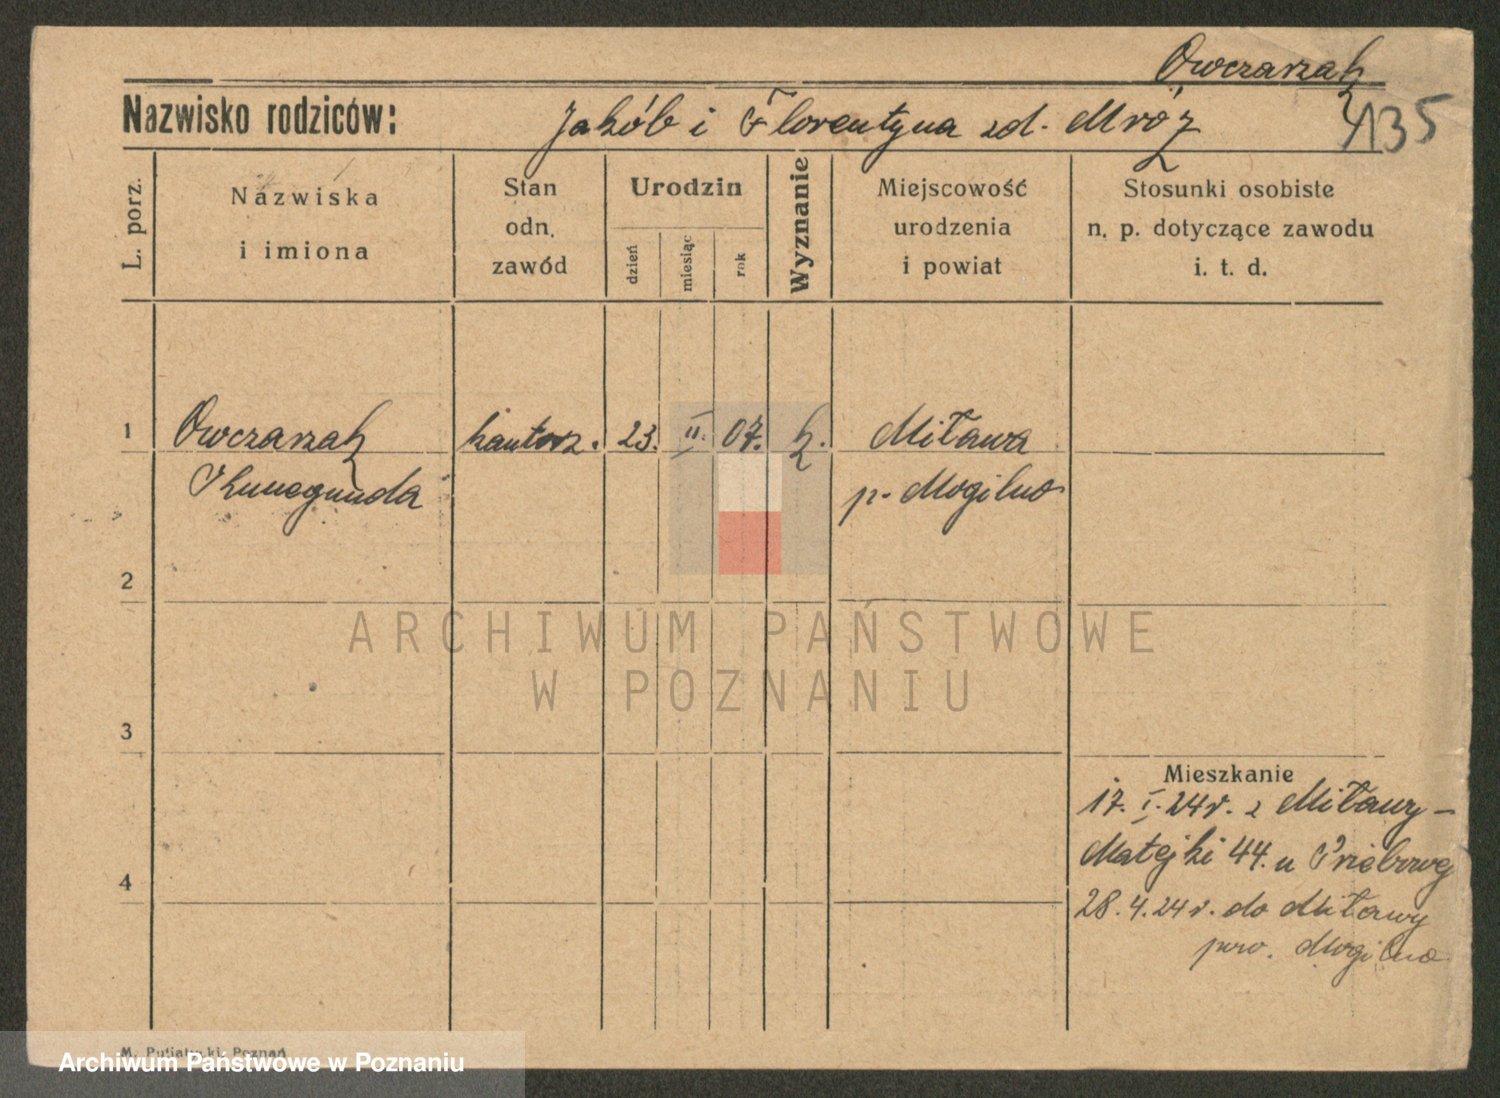 Owczarzak
Nazwisko rodziców: Jakób i Florentyna zd. Mróz 135
L. porz.
Nazwiska
i imiona
Stan
odn.
zawód
Urodzin
dzień
miesiąc
rok
Wyznanie
Miejscowość
urodzenia
i powiat
Stosunki osobiste
n. p. dotyczące zawodu
i. t. d.
1 Owczarzak kantorz. 23. II. 07. k. Miława
Kunegunda p. Mogilno
2
ARCHIWUM PAŃSTWOWE
W POZNANIU
3
Mieszkanie
17. I. 24 r. z Miławy -
Matejki 44. u
4
28. 4. 24 r. do Miławy
pow. Mogilno
Archiwum Państwowe w Poznaniu